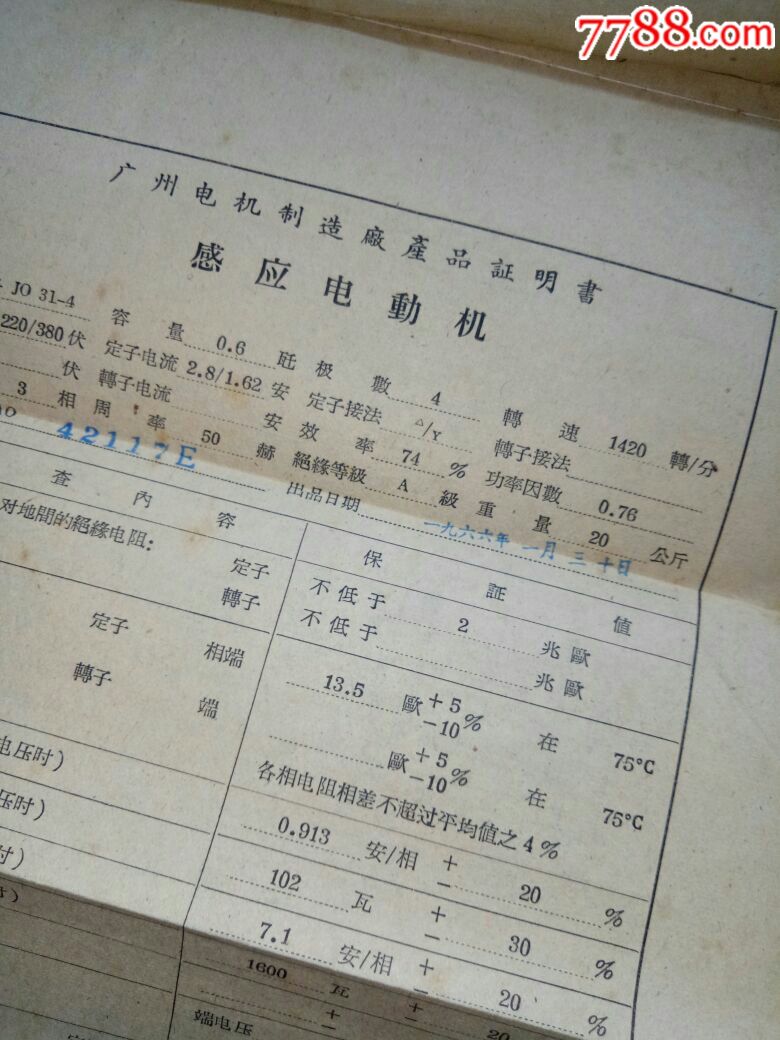 7788.com
广州电机制造廠產品証明書
感应电動机
JO 31-4 容量 0.6 瓩 极數 4 轉速 1420 轉/分
220/380 伏 定子电流 2.8/1.62 安 定子接法 △/Y 轉子接法
伏 轉子电流 安 效率 74 % 功率因數 0.76
3 相 周率 50 赫 絕緣等級 A 級 重量 20 公斤
no 42117E 出品日期 一九六六年 一月 三十日
查內容 保証值
对地間的絕緣电阻: 定子 不低于 2 兆歐
轉子 不低于 兆歐
定子 相端 13.5 歐 +5 -10 % 在 75°C
轉子 端 歐 +5 -10 % 在 75°C
各相电阻相差不超过平均值之 4%
电压时) 0.913 安/相 + - 20 %
压时) 102 瓦 + - 30 %
时) 7.1 安/相 + - 20 %
时) 1600 瓦 + - 20
端电压